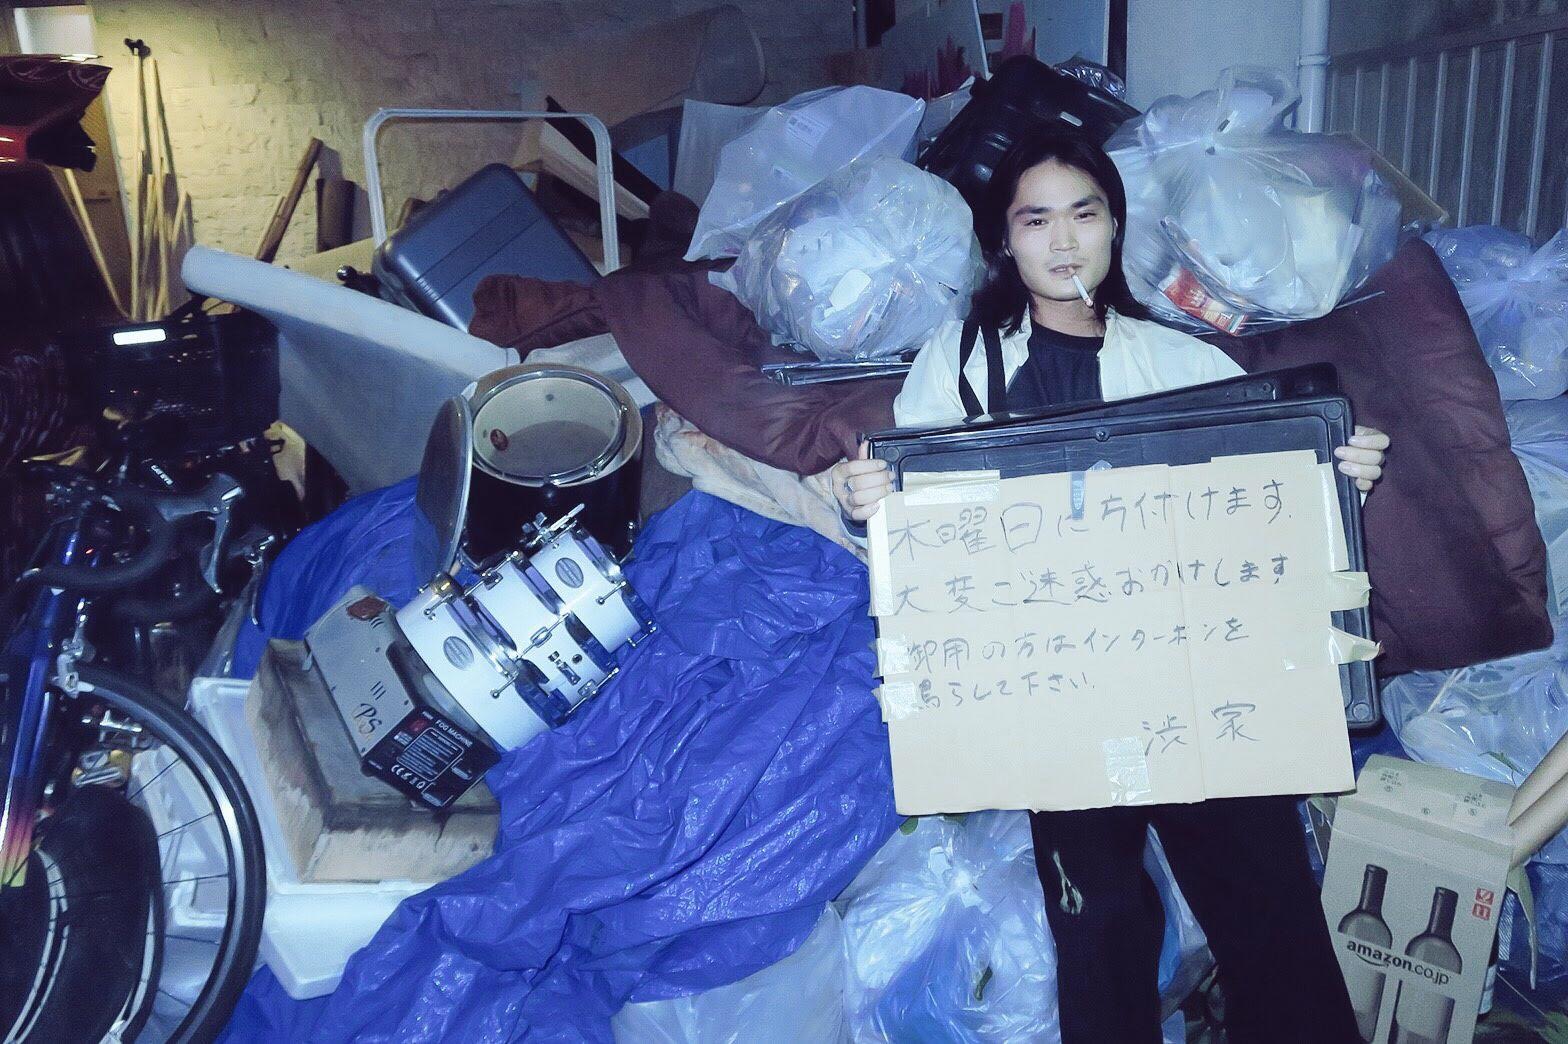 木曜日に片付けます.
大変ご迷惑おかけします
御用の方はインターホンを
鳴らして下さい.
渋家
PS
amazon.co.jp